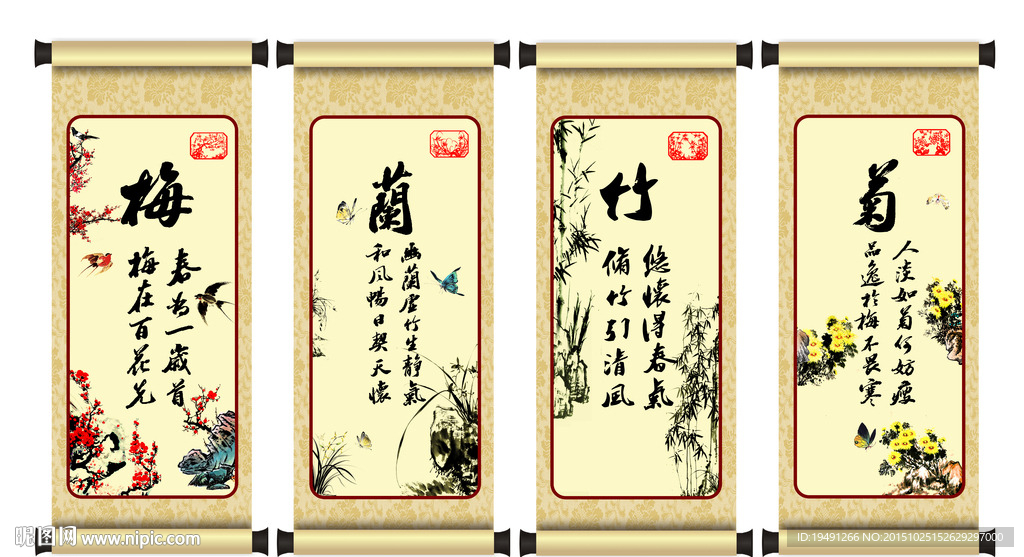 梅
春為一歲首
梅在百花先
蘭
幽蘭虛竹生靜氣
和風暢日契天懷
竹
悠懷得春氣
脩竹引清風
菊
人淡如菊何妨瘦
品逸於梅不畏寒
昵图网 www.nipic.com
ID:19491266 NO:20151025152629297000